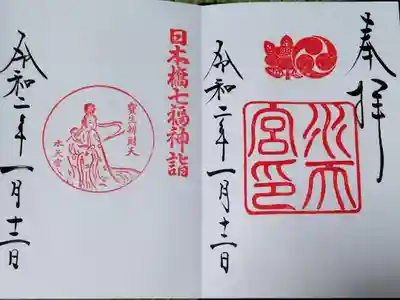 奉拝
水天
宮印
令和二年一月十二日
日本橋七福神詣
寳生辨財天
水天宮
令和二年一月十二日